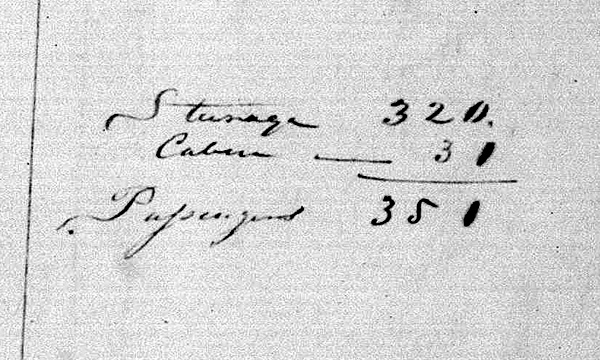 Steerage 320.
Cabin — 30
Passengers 350